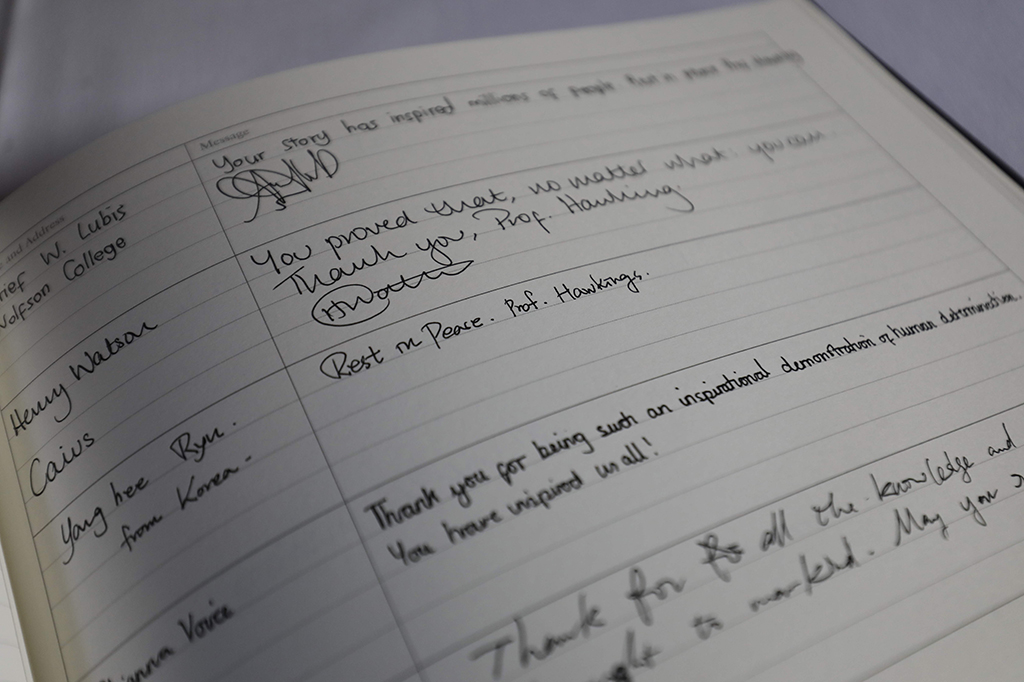 and Address
Message
W. Lubis
Wolfson College
Your story has inspired millions of people that in
Henry Watson
Caius
You proved that, no matter what, you can.
Thank you, Prof. Hawking.
Yang hee Ryu.
from Korea-
Rest in Peace. Prof. Hawkings.
Thank you for being such an inspirational demonstration of human determination.
You have inspired us all!
Thank for all the knowledge and
to mankind. May you